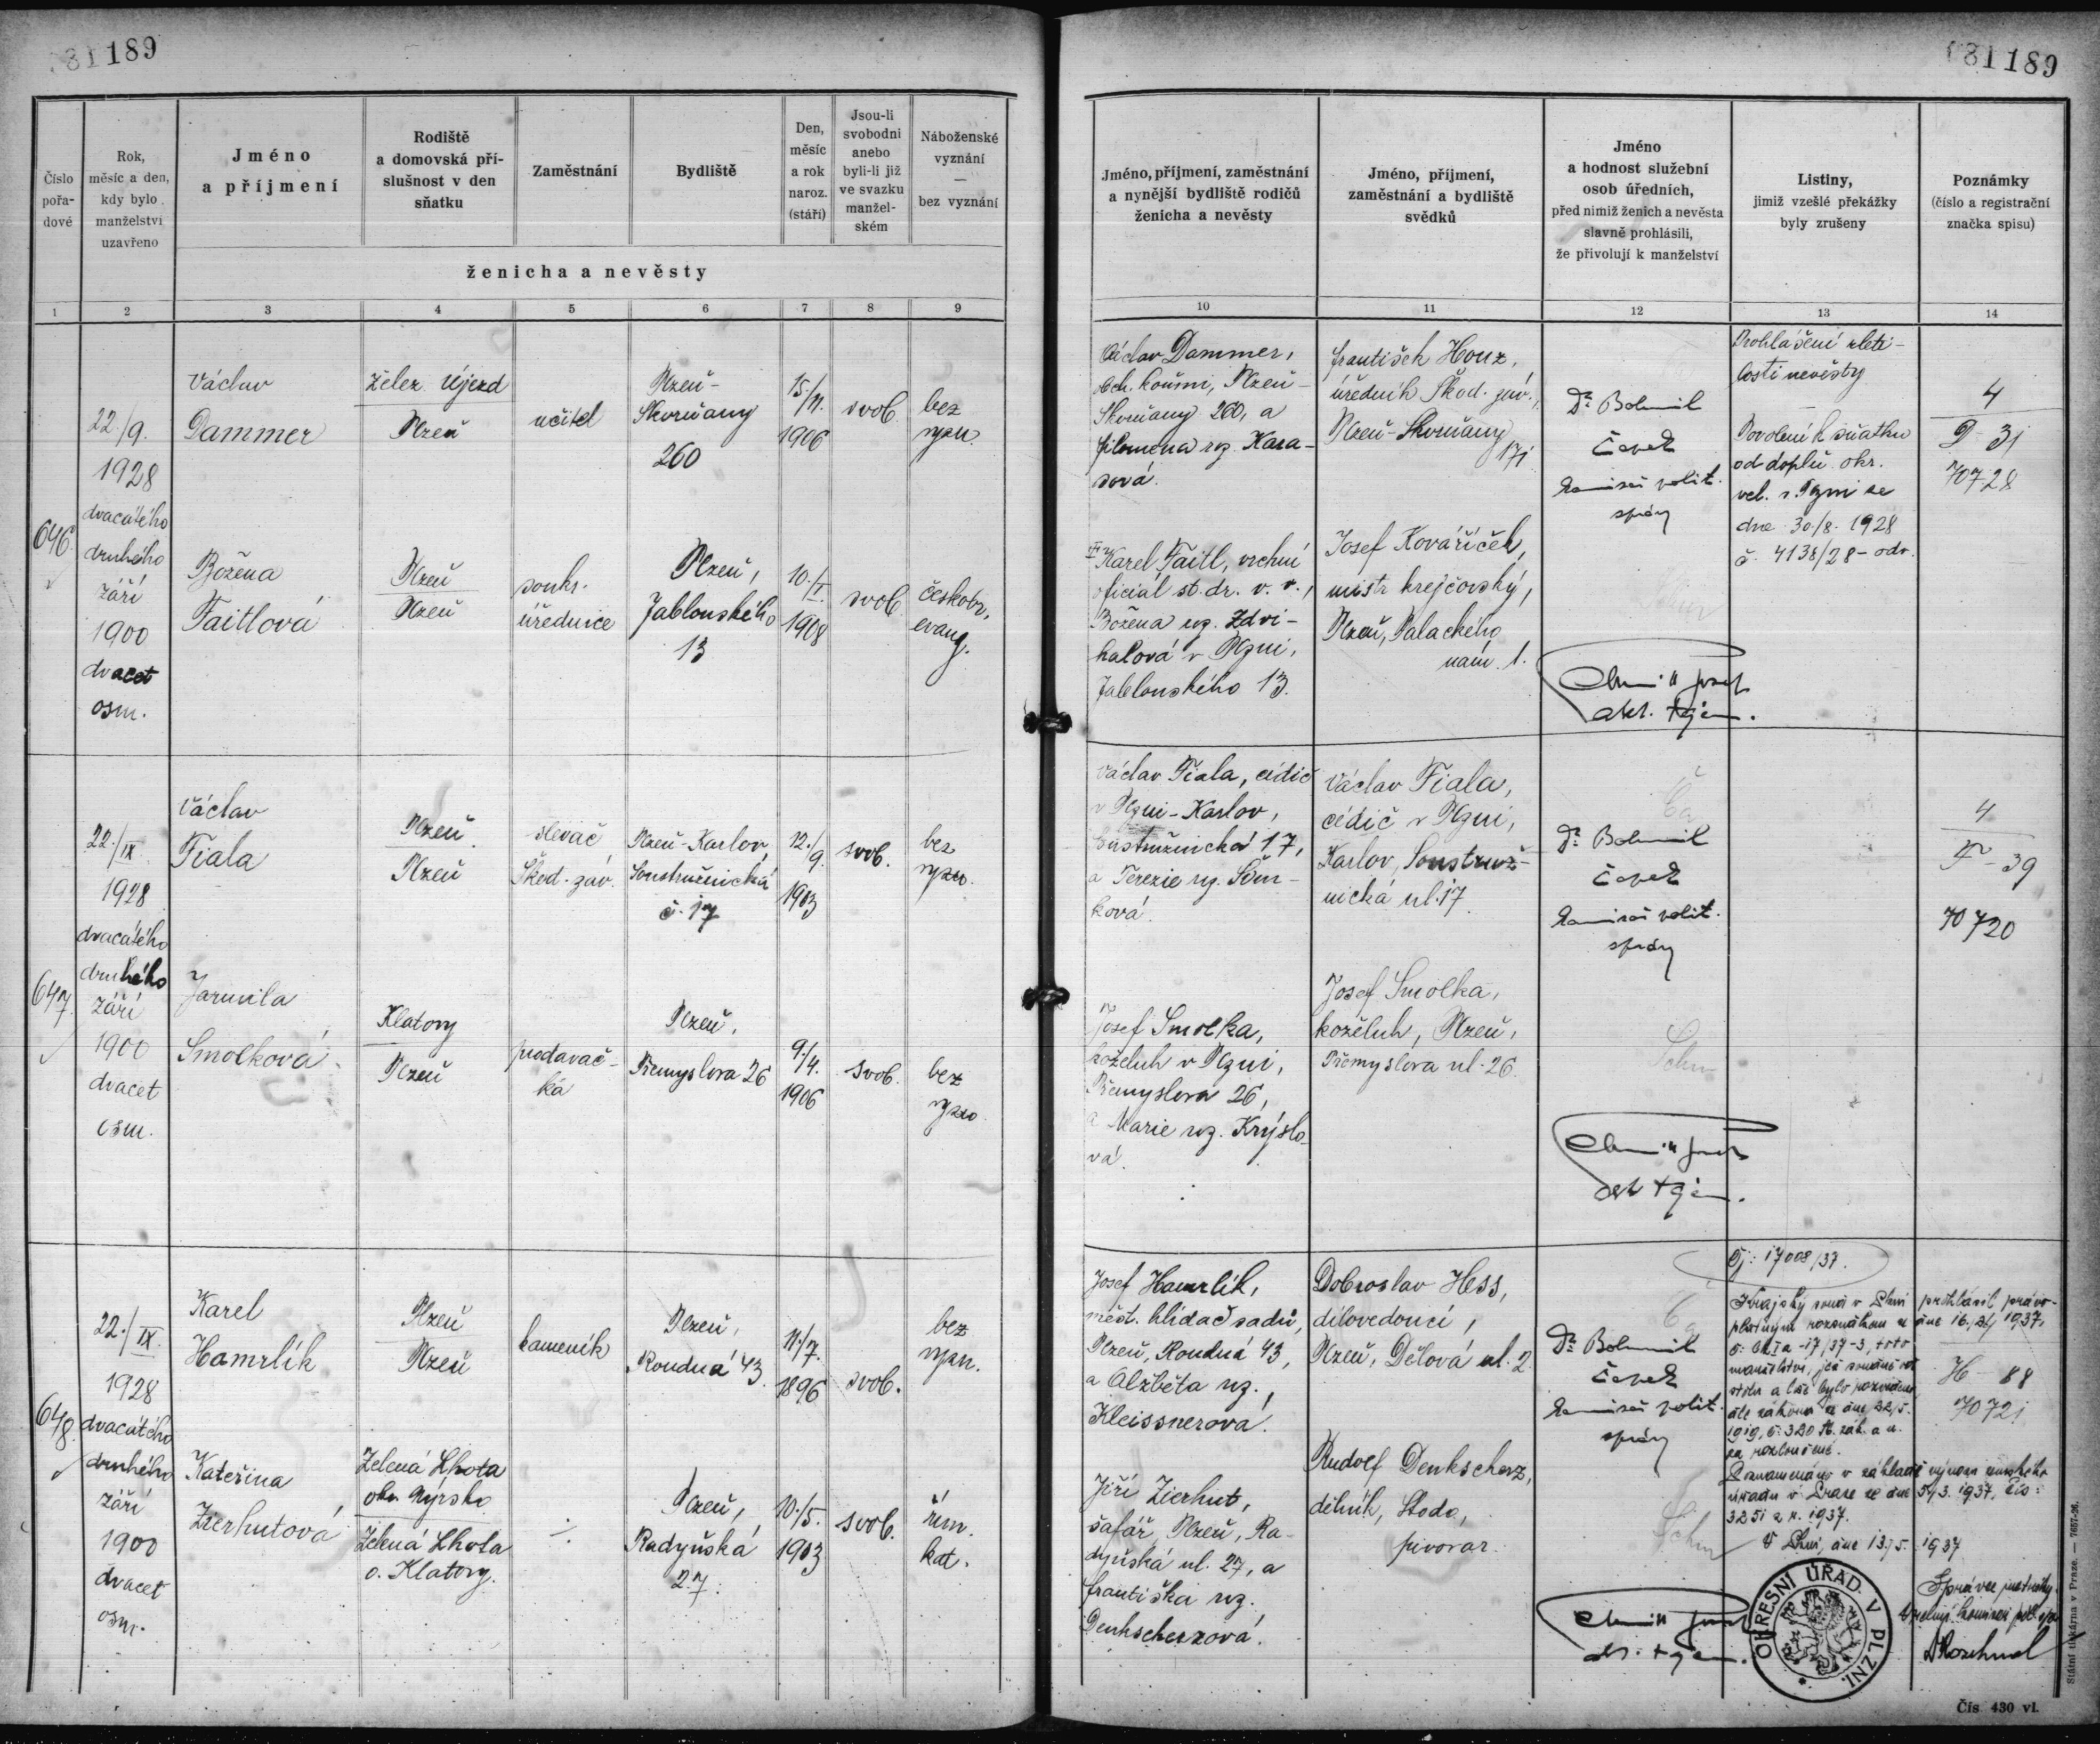 189
189
Číslo
pořa-
dové
Rok,
měsíc a den,
kdy bylo
manželství
uzavřeno
Jméno
a příjmení
Rodiště
a domovská pří-
slušnost v den
sňatku
Zaměstnání
Bydliště
Den,
měsíc
a rok
naroz.
(stáří)
Jsou-li
svobodni
anebo
byli-li již
ve svazku
manžel-
ském
Náboženské
vyznání
—
bez vyznání
ženicha a nevěsty
Jméno, příjmení, zaměstnání
a nynější bydliště rodičů
ženicha a nevěsty
Jméno, příjmení,
zaměstnání a bydliště
svědků
Jméno
a hodnost služební
osob úředních,
před nimiž ženich a nevěsta
slavně prohlásili,
že přivolují k manželství
Listiny,
jimiž vzešlé překážky
byly zrušeny
Poznámky
(číslo a registrační
značka spisu)
1 2 3 4 5 6 7 8 9
10 11 12 13 14
646.
22./9.
1928
dvacátého
druhého
září
1900
dvacet
osm.
Václav
Dammer
Želez. Újezd
Plzeň
učitel
Plzeň-
Skvrňany
260
15./11.
1906
svob.
bez
vyzn.
Božena
Faitlová
Plzeň
Plzeň
soukr.
úřednice
Plzeň,
Jablonského
13
10./I.
1908
svob.
českobr.
evang.
Václav Dammer,
Plzeň-
Skvrňany 260, a
Filomena roz. Kara-
sová.
Karel Faitl, vrchní
oficiál st. dr. v. v.,
Božena roz. Zdvi-
halová v Plzni,
Jablonského 13.
František Houz,
úředník Škod. záv.,
Plzeň-Skvrňany
171
Josef Kovaříček,
mistr krejčovský,
Plzeň, Palackého
nám. 1.
Dr. Bohumil
Čapek
komisař polit.
správy
Prohlášení zleti-
losti nevěsty
Povolení k sňatku
od doplň. okr.
vel. v Plzni ze
dne 30./8. 1928
č. 4138/28-odv.
4
D-31
70728
647.
22./IX.
1928
dvacátého
druhého
září
1900
dvacet
osm.
Václav
Fiala
Plzeň
Plzeň
slévač
Škod. záv.
Plzeň-Karlov
Soustružnická
č. 17
12./9.
1903
svob.
bez
vyzn.
Jarmila
Smolková
Klatovy
Plzeň
prodavač-
ka
Plzeň,
Přemyslova 26
9./4.
1906
svob.
bez
vyzn.
Václav Fiala, cídič
v Plzni-Karlov,
Soustružnická 17,
a Terezie roz. Šim-
ková.
Josef Smolka,
koželuh v Plzni,
Přemyslova 26,
a Marie roz. Krýslo-
vá.
Václav Fiala,
cídič v Plzni,
Karlov, Soustruž-
nická ul. 17
Josef Smolka,
koželuh, Plzeň,
Přemyslova ul. 26.
Dr. Bohumil
Čapek
komisař polit.
správy
4
F-39
70720
648.
22./IX.
1928
dvacátého
druhého
září
1900
dvacet
osm.
Karel
Hamrlík
Plzeň
Plzeň
kameník
Plzeň,
Roudná 43
11./7.
1896
svob.
bez
vyzn.
Kateřina
Zierhutová
Zelená Lhota
okr. Nýrsko
Zelená Lhota
o. Klatovy.
Plzeň,
Radyňská
27.
10./5.
1903
svob.
řím.
kat.
Josef Hamrlík,
měst. hlídač sadů,
Plzeň, Roudná 43,
a Alžběta roz.
Kleissnerová.
Jiří Zierhut,
šafář, Plzeň, Ra-
dyňská ul. 27, a
Františka roz.
Denkscherzová.
Dobroslav Hess,
dílovedoucí,
Plzeň, Dělová ul. 2.
Rudolf Denkscherz,
dělník, Stod,
pivovar.
Dr. Bohumil
Čapek
komisař polit.
správy
Čj: 17008/37.
Krajský soud v Plzni prohlásil právo-
platným rozsudkem ze dne 16./2. 1937,
manželství
zákona ze dne 22./5.
1919, č. 320 Sb. zák. a n.
za rozloučené.
Poznamenáno v základě výnosu zemského
úřadu v Praze ze dne 5./3. 1937, čís:
V Plzni, dne 13./5. 1937
H-88
70721
Správce matriky
OKRESNÍ ÚŘAD V PLZNI.
Státní tiskárna v Praze. — 7657-26.
Čís. 430 vl.